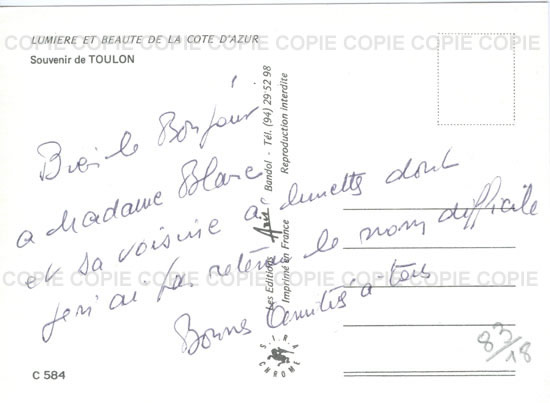 LUMIERE ET BEAUTE DE LA COTE D'AZUR
COPIE COPIE COPIE COPIE COPIE COPIE COPIE COPIE COPIE
Souvenir de TOULON
Bien le Bonjour
a Madame Blanc
et sa voisine a lunettes dont
je n'ai pas retenu le nom difficile
Bonnes Amitiés à tous
COPIE COPIE COPIE COPIE COPIE COPIE COPIE COPIE COPIE
Les Editions Bandol - Tél. (94) 29 52 98
Imprimé en France Reproduction interdite
S.I.R.A.
CHROME
83/18
C 584